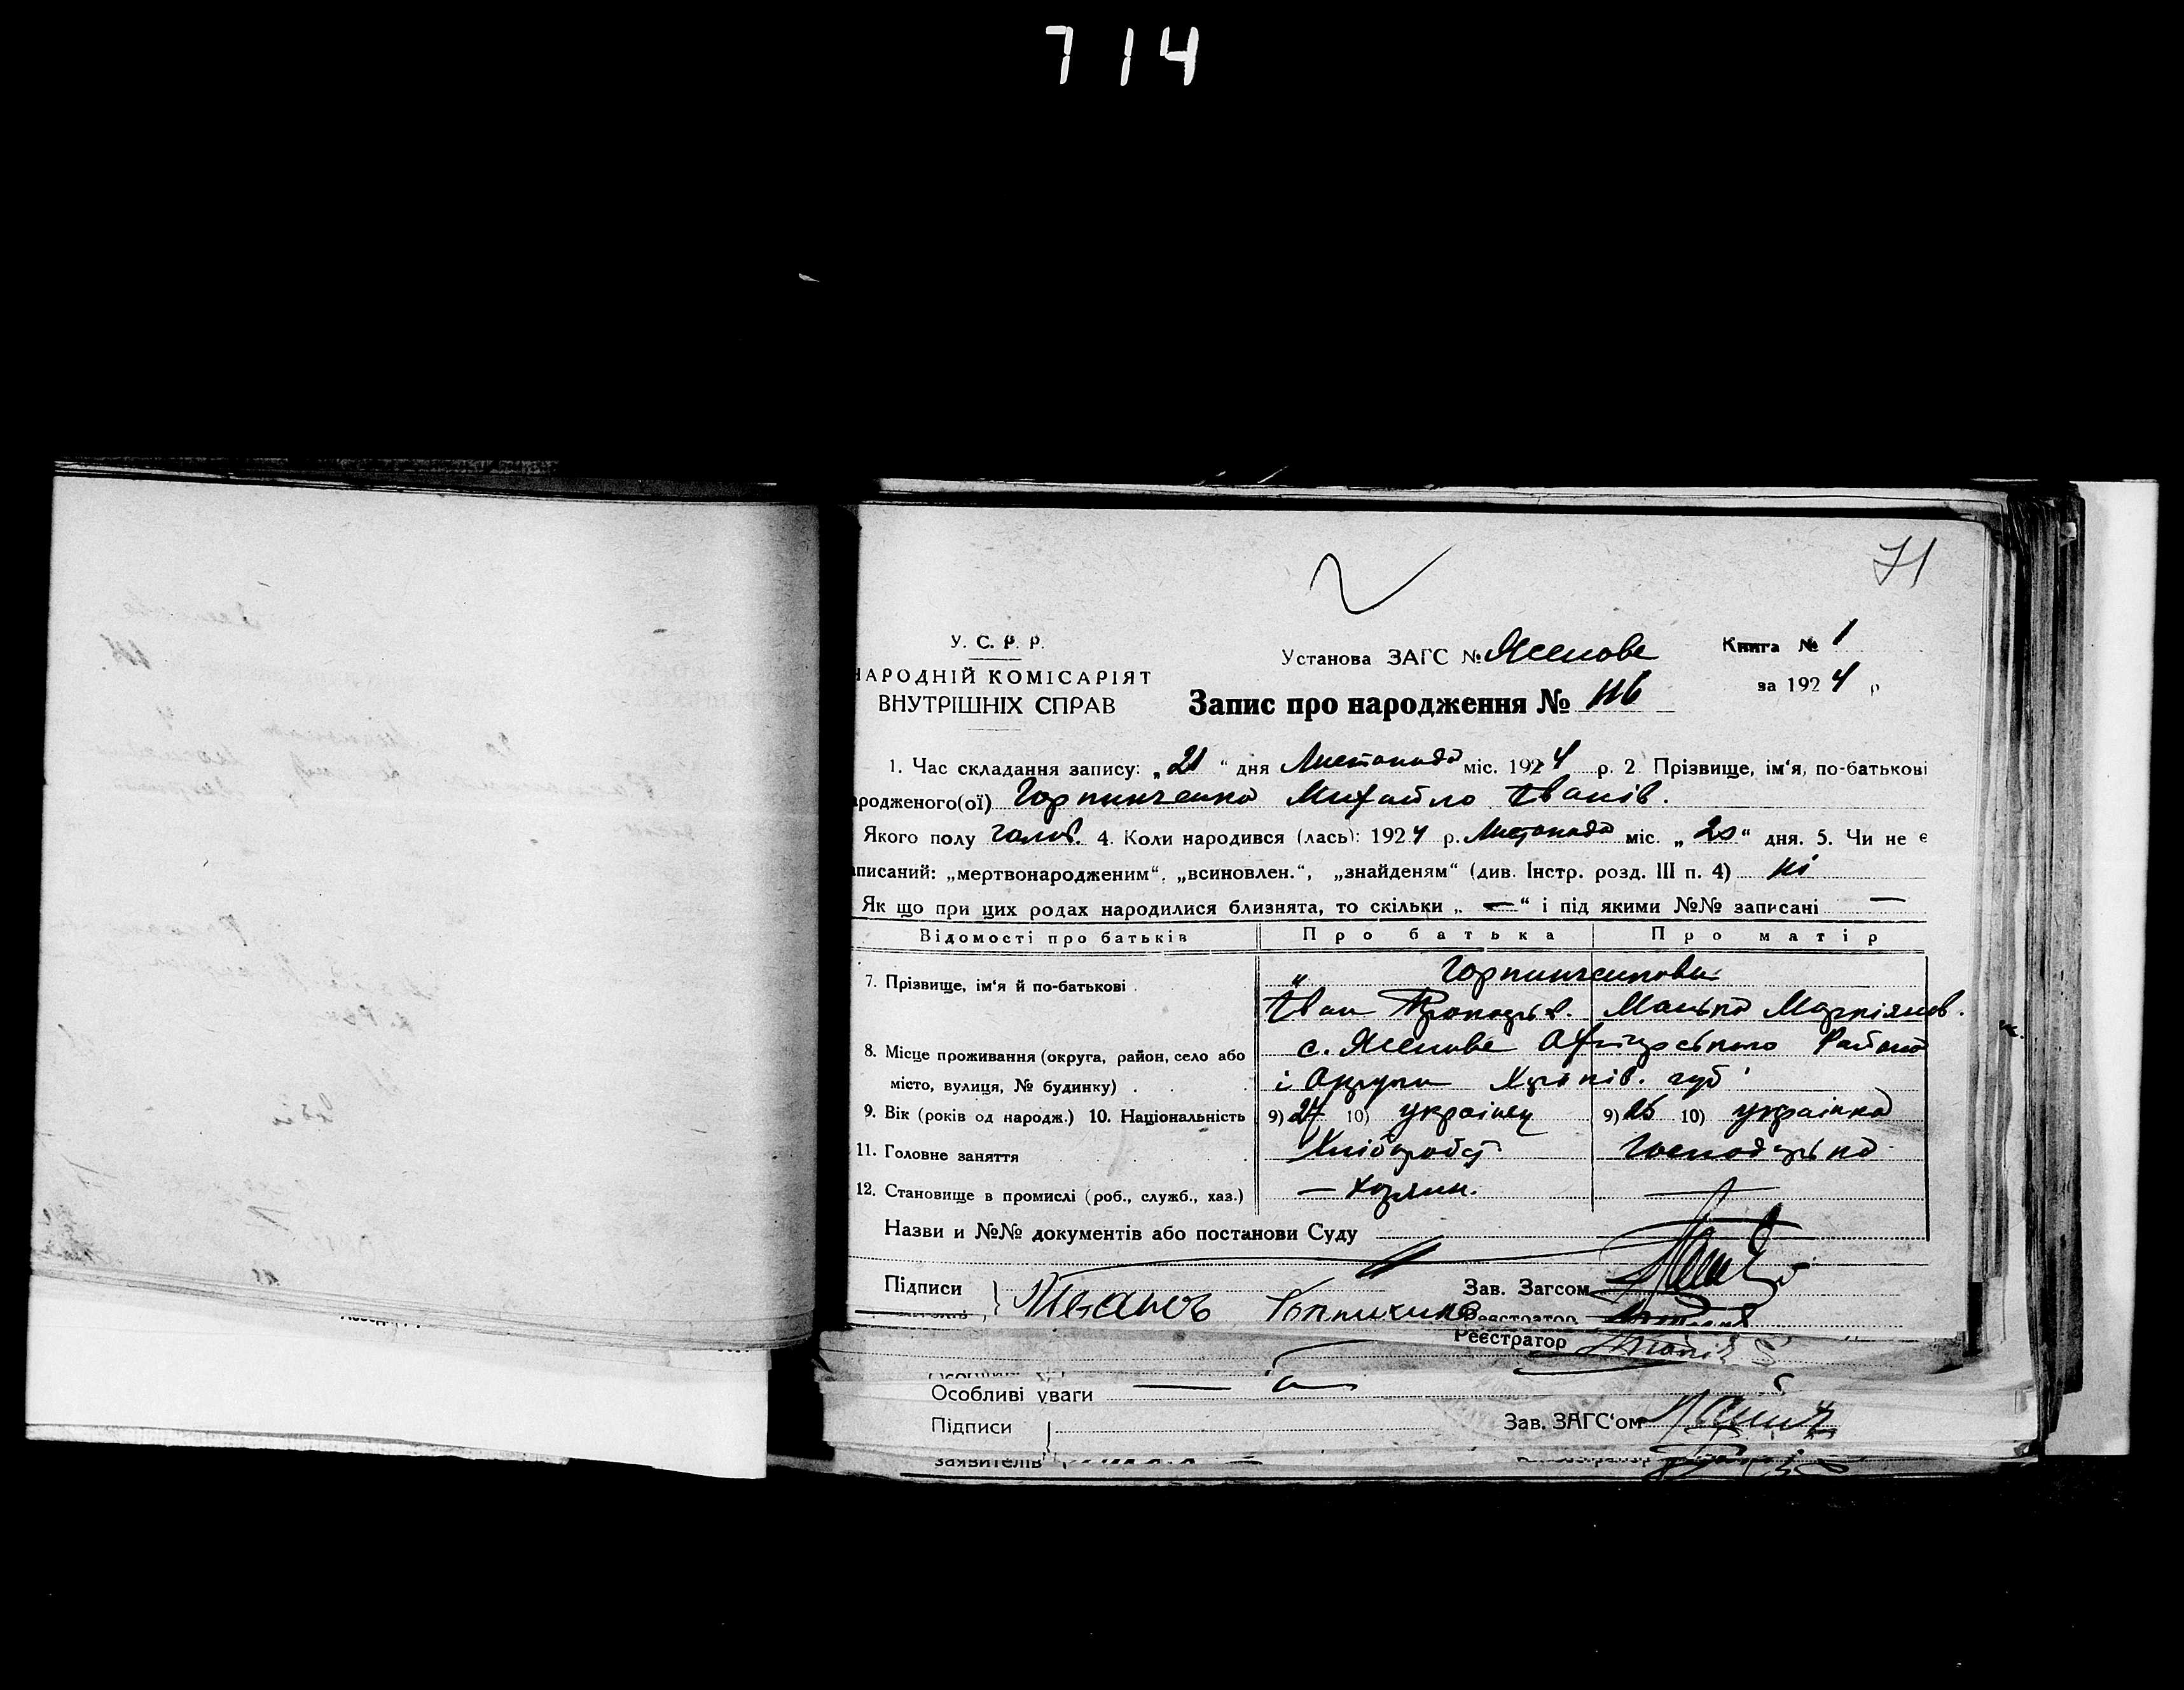 714
71
У. С. Р. Р.
НАРОДНІЙ КОМІСАРІЯТ
ВНУТРІШНІХ СПРАВ
Установа ЗАГС № Ясенове
Книга № 1
за 1924 р
Запис про народження № 116
1. Час складання запису: „21“ дня Листопада міс. 1924 р. 2. Прізвище, ім‘я, по-батькові
ародженого(ої) Горпинченко Михайло Іванів.
Якого полу голов. 4. Коли народився (лась): 1924 р. Листопада міс. „20“ дня. 5. Чи не є
аписаний: „мертвонародженим“, „всиновлен.“, „знайденям“ (див. Інстр. розд. III п. 4) ні
Як що при цих родах народилися близнята, то скільки „—“ і під якими №№ записані —
Відомості про батьків Про батька Про матір
7. Прізвище, ім‘я й по-батькові „ Горпинченкови
Іван
8. Місце проживання (округа, район, село або с. Ясенове Району
місто, вулиця, № будинку) і Округи губ
9. Вік (років од народж.) 10. Національність 9) 27 10) українец 9) 25 10) українка
11. Головне заняття Хлібороб Господарка
12. Становище в промислі (роб., служб., хаз.) — хозяин. —
Назви и №№ документів або постанови Суду
Підписи Зав. Загсом
Реєстратор
Реєстратор
Особливі уваги —
Підписи Зав. ЗАГС‘ом
заявителів